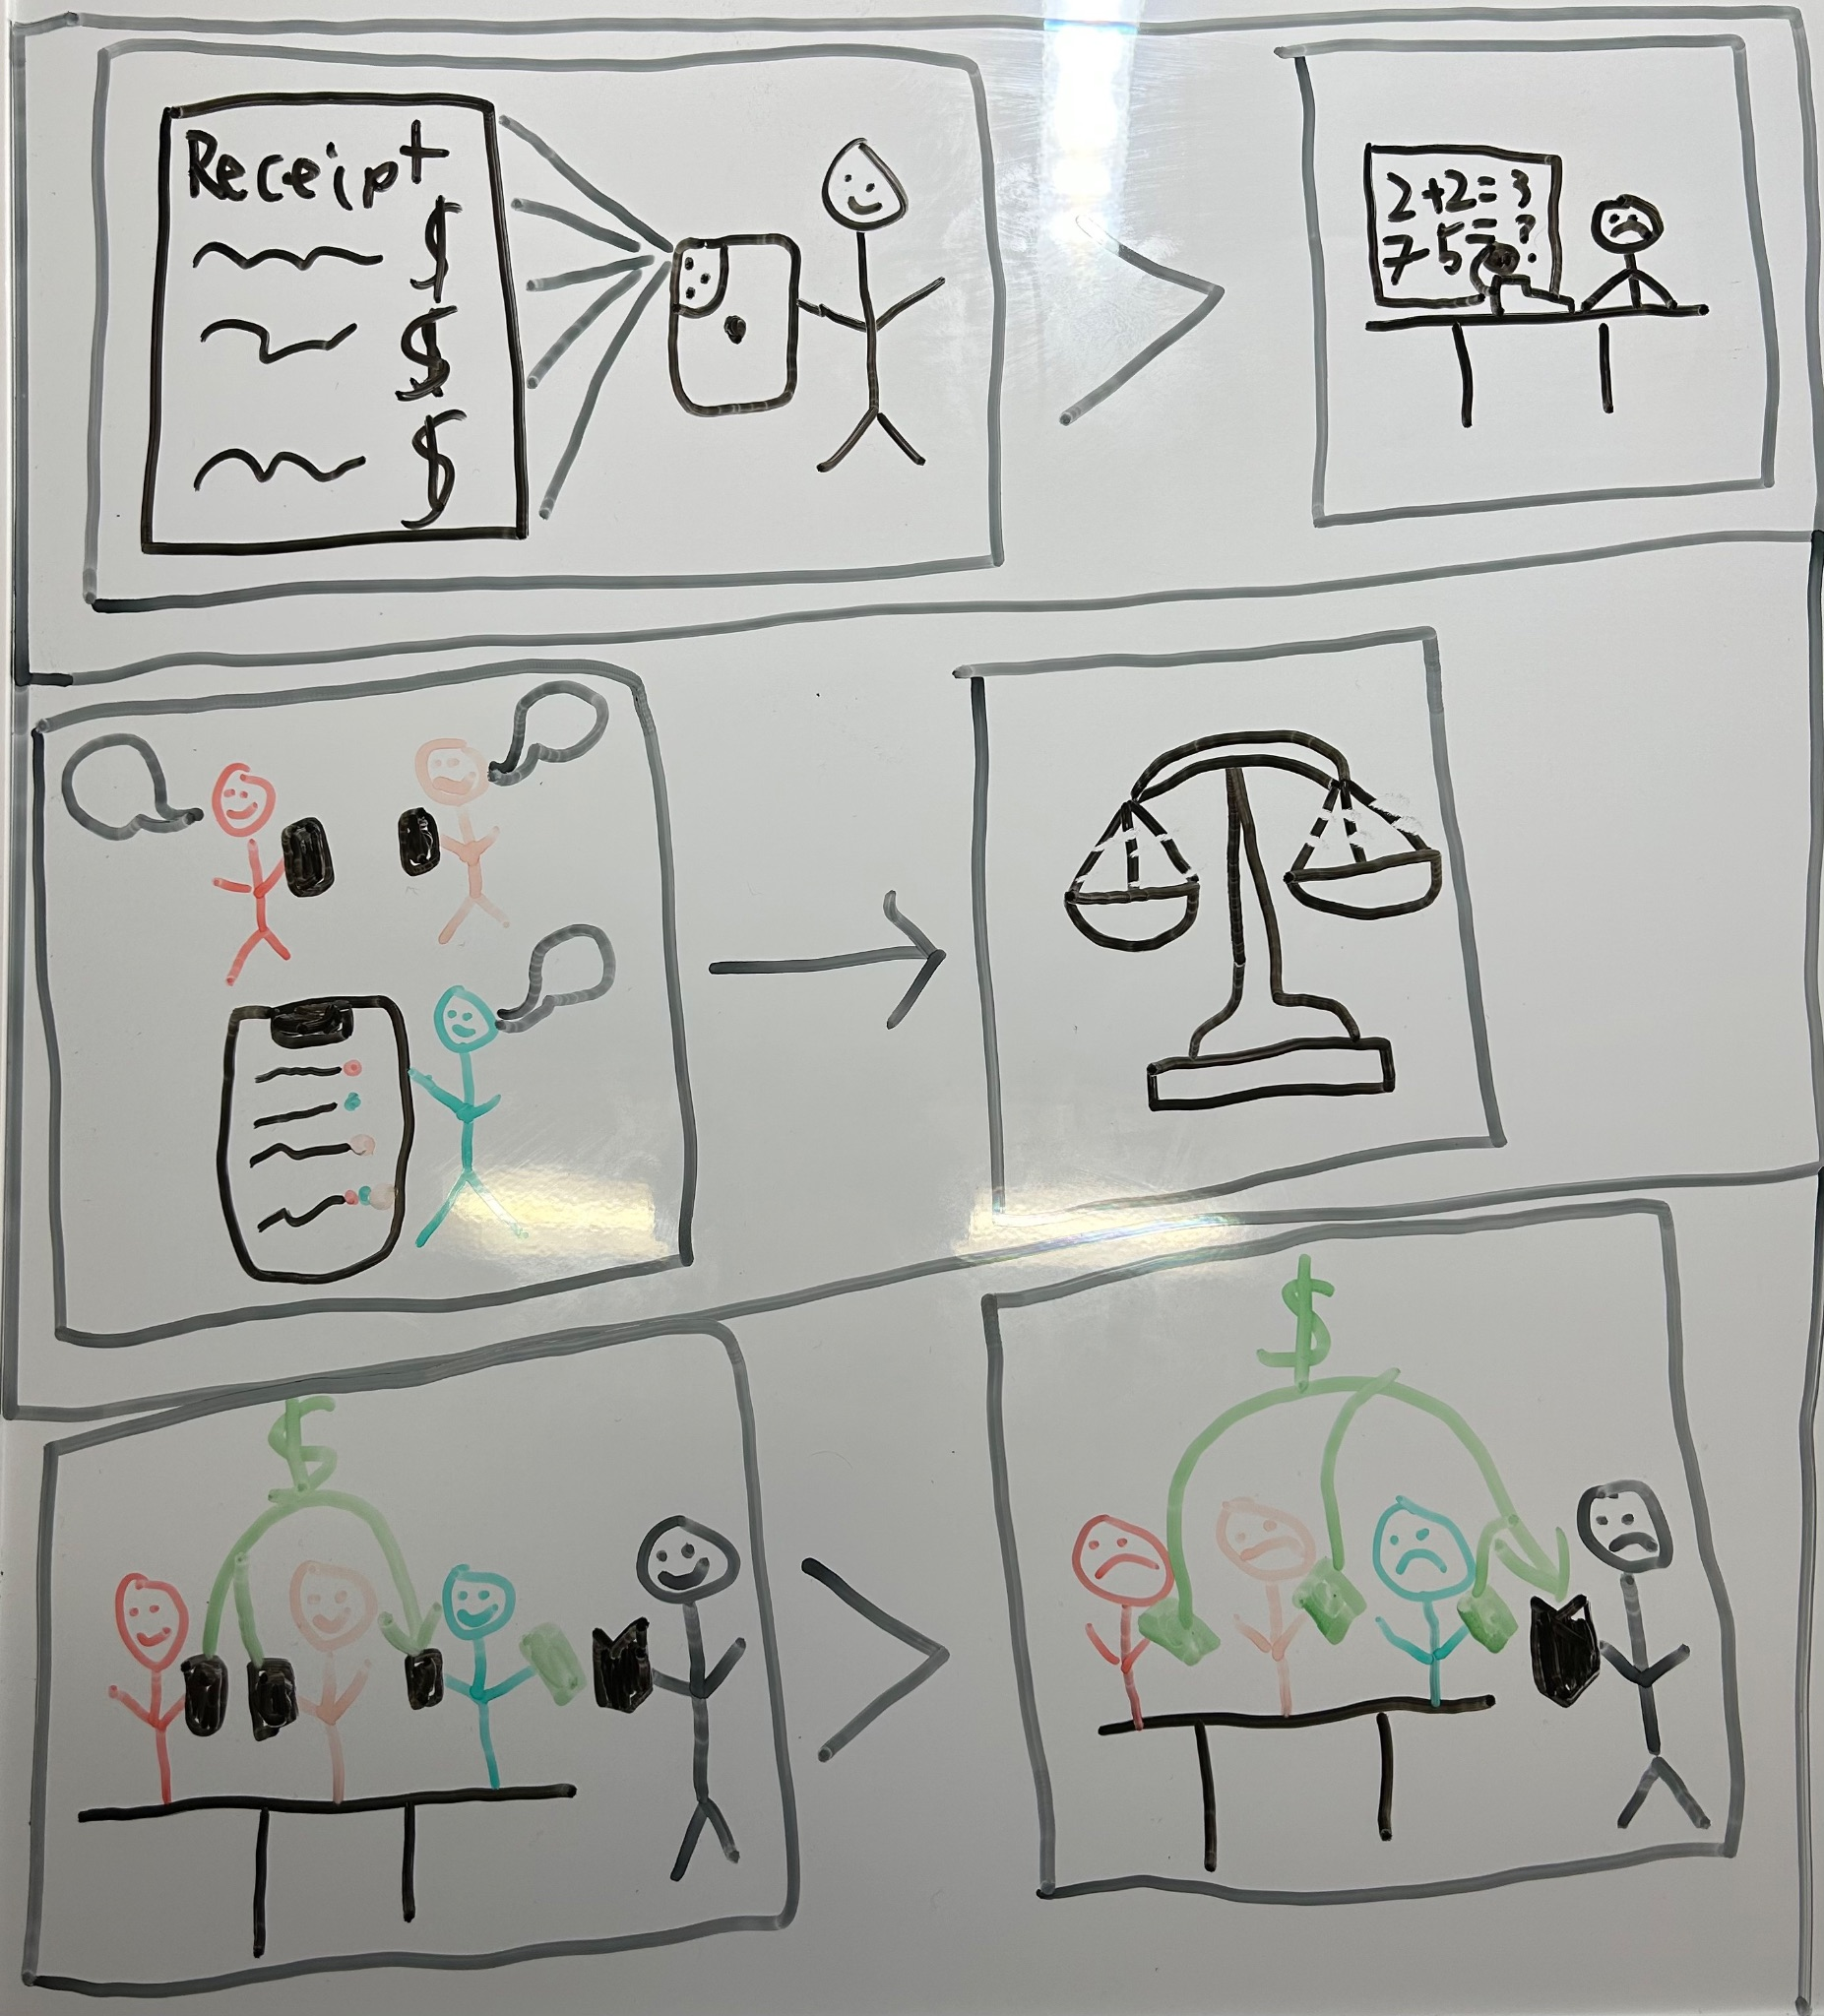 Receipt
$
$
$
2+2=3
7-5=?
$
$